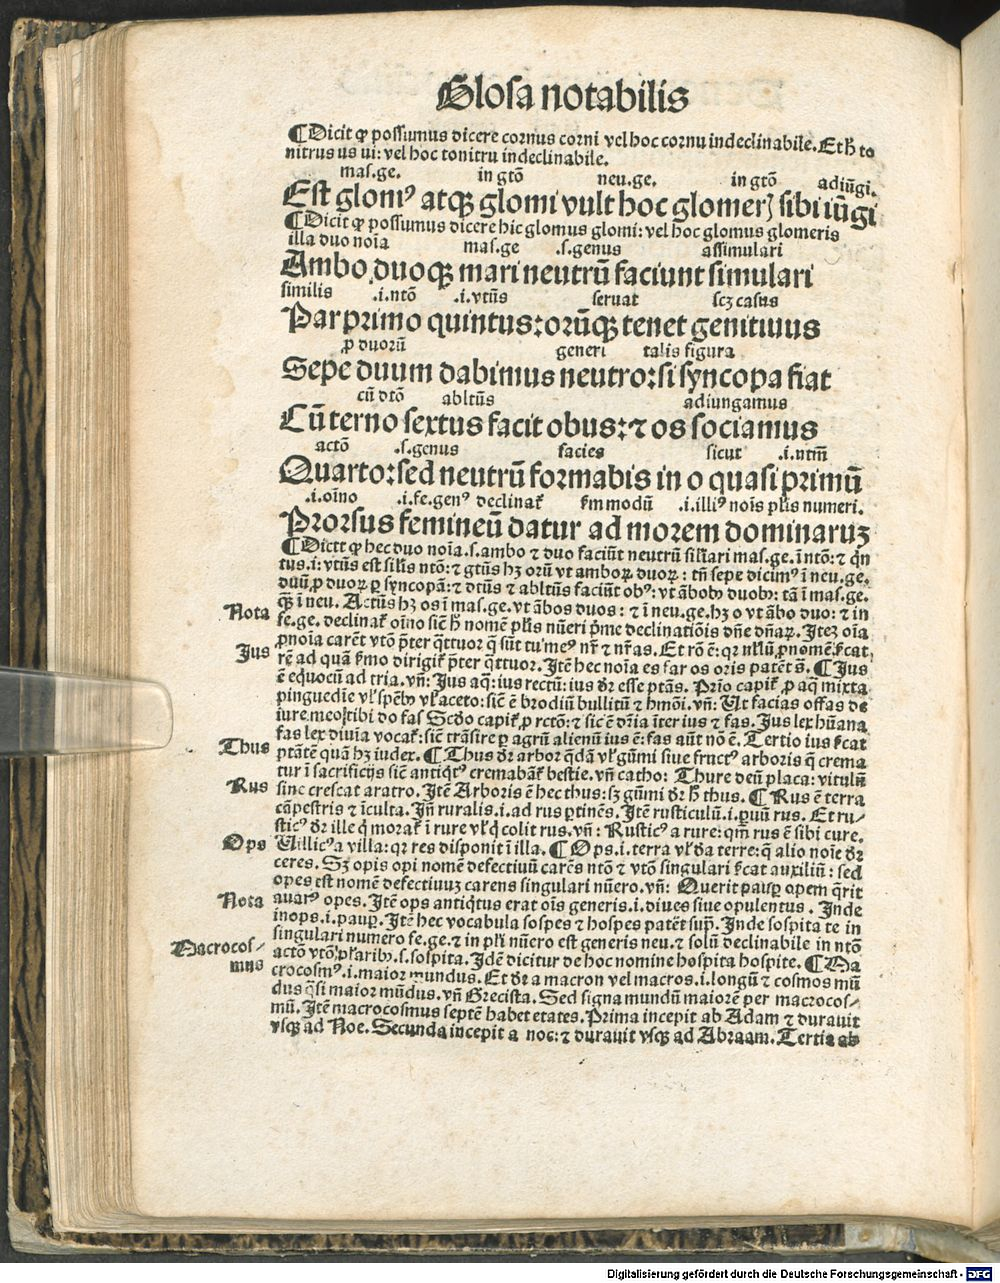 Glosa notabilis
¶Dicit ꝙ possumus dicere cornus corni vel hoc cornu indeclinabile. Et h̄ to
nitrus us ui: vel hoc tonitru indeclinabile.
mas.ge. in gtō neu.ge. in gtō adiūgi.
Est glomꝰ atqꝫ glomi vult hoc glomerꝭ sibi iūgi
¶Dicit ꝙ possumus dicere hic glomus glomi: vel hoc glomus glomeris
illa duo noīa mas.ge .s.genus assimulari
Ambo duoqꝫ mari neutrū faciunt simulari
similis .i.ntō .i.vtūs seruat scꝫ casus
Par primo quintus: orūqꝫ tenet genitiuus
ꝓ duorū generi talis figura
Sepe duum dabimus neutro: si syncopa fiat
cū dtō abltūs adiungamus
Cū terno sextus facit obus: ⁊ os sociamus
actō .s.genus facies sicut .i.ntm̄
Quarto: sed neutrū formabis in o quasi primū
.i.oīno .i.fe.genꝰ declinat̄ ẜm modū .i.illiꝰ noīs pl̄is numeri.
Prorsus femineū datur ad morem dominaruꝫ
¶Dicit ꝙ hec duo noīa.s.ambo ⁊ duo faciūt neutrū sil̄lari mas.ge.ī ntō: ⁊ qn̄
tus.i: vtūs est sil̄is ntō: ⁊ gtūs hꝫ orū vt amboꝝ duoꝝ: tn̄ sepe dicimꝰ ī neu.ge.
duū ꝓ duoꝝ ꝑ syncopā: ⁊ dtūs ⁊ abltūs faciūt obꝰ: vt ābobꝫ duobꝫ: tā ī mas.ge.
qꝫ ī neu. Actūs hꝫ os ī mas.ge.vt ābos duos: ⁊ ī neu.ge.hꝫ o vt ābo duo: ⁊ in
Nota
fe.ge. declinat̄ oīno sic̄ h̄ nomē pl̄is nūeri prīme declinatiōis dn̄e dn̄aꝝ. Iteꝫ oīa
ꝓnoīa carēt vtō p̄ter q̄ttuor q̄ sūt tu meꝰ nr̄ ⁊ nr̄as. Et rō ē: qꝛ nl̄lū ꝓnomē ẜcat
Ius
rē ad quā ẜmo dirigit̄ p̄ter q̄ttuor. Itē hec noīa es far os oris patēt s̄. ¶ Ius
ē equocū ad tria. vn̄: Ius aq̄: ius rectū: ius dr̄ esse ptās. Prīo capit̄ ꝓ aq̄ mixta
pinguedīe vl̓ spēbꝫ vl̓ aceto: sic̄ ē brodiū bullitū ⁊ hmōi. vn̄: Ut facias offas de
iure meo tibi do fas Scd̄o capit̄ ꝓ rctō: ⁊ sic ē dn̄īa īter ius ⁊ fas. Ius lex hūana
fas lex diuīa vocat̄: sic̄ trāsire ꝑ agrū alienū ius ē: fas aūt nō ē. Tertio ius ẜcat
Thus
ptātē quā hꝫ iudex. ¶ Thus dr̄ arbor q̄dā vl̓ gūmi siue fructꝰ arboris q̄ crema
tur ī sacrificijs sic̄ antiq̄tꝰ cremabāt̄ bestie. vn̄ catho: Thure deū placa: vitulū
Rus
sine crescat aratro. Itē Arboris ē hec thus: sꝫ gūmi dr̄ h̄ thus. ¶ Rus ē terra
cāpestris ⁊ īculta. Jn̄ ruralis.i.ad rus ꝑtinēs. Itē rusticulū.i.ꝑuū rus. Et ru-
sticꝰ dr̄ ille q̄ morat̄ ī rure vl̓ q̄ colit rus. vn̄: Rusticꝰ a rure: qm̄ rus ē sibi cure.
Ops
Uillicꝰ a villa: qꝛ res disponit ī illa. ¶ Ops.i.terra vl̓ d̄a terre: q̄ alio noīe dr̄
ceres. Sꝫ opis opi nomē defectiuū carēs ntō ⁊ vtō singulari ẜcat auxiliū: sed
opes est nomē defectiuuꝫ carens singulari nūero. vn̄: Querit paup̄ opem q̄rit
Nota
auarꝰ opes. Itē ops antiq̄tus erat oīs generis.i.diues siue opulentus. Inde
inops.i.pauꝑ. Itē hec vocabula sospes ⁊ hospes patēt sup̄. Inde sospita te in
singulari numero fe.ge.⁊ in pl̄i nūero est generis neu.⁊ solū declinabile in ntō
Macrocos-
mus
actō vtō pl̄aribꝫ.s.sospita. Idē dicitur de hoc nomine hospita hospite. ¶Ma
crocosmꝰ.i.maior mundus. Et dr̄ a macron vel macros.i.longū ⁊ cosmos mū
dus q̄si maior mūdus. vn̄ Grecista. Sed signa mundū maiorē per macrocos-
mū. Itē macrocosmus septē habet etates. Prima incepit ab Adam ⁊ durauit
vsqꝫ ad Noe. Secunda incepit a noe: ⁊ durauit vsqꝫ ad Abraam. Tertia ab
Digitalisierung gefördert durch die Deutsche Forschungsgemeinschaft - DFG